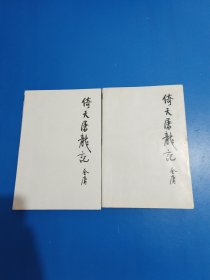 倚天屠龍記
金庸
倚天屠龍記
金庸